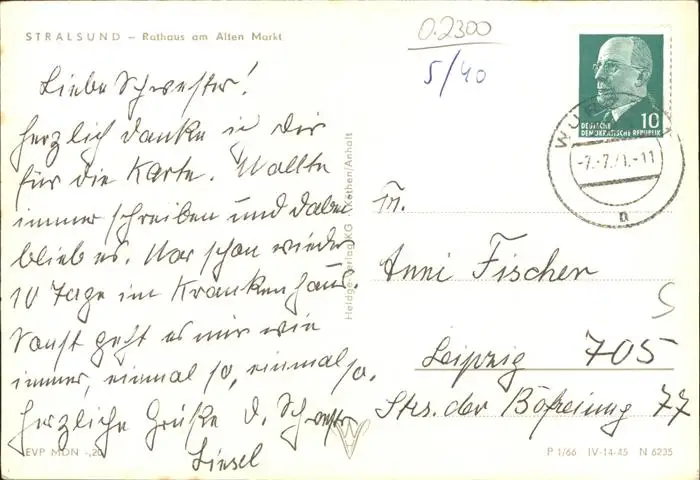 STRALSUND – Rathaus am Alten Markt
0.2300
5/40
Liebe Schwester!
Herzlich danke ich Dir
für die Karte. Wollte
immer schreiben und dabei
blieb es. War schon wieder
10 Tage im Krankenhaus.
Sonst geht es mir wie
immer, einmal so, einmal so.
Herzliche Grüße d. Schwester
Liesel
EVP MDN -,20
Heldge-Verlag KG Köthen/Anhalt
10
DEUTSCHE
DEMOKRATISCHE REPUBLIK
-7.-7.71.-11
a
Fr.
Anni Fischer
Leipzig 705
Strs. der Befreiung 77
P 1/66 IV-14-45 N 6235